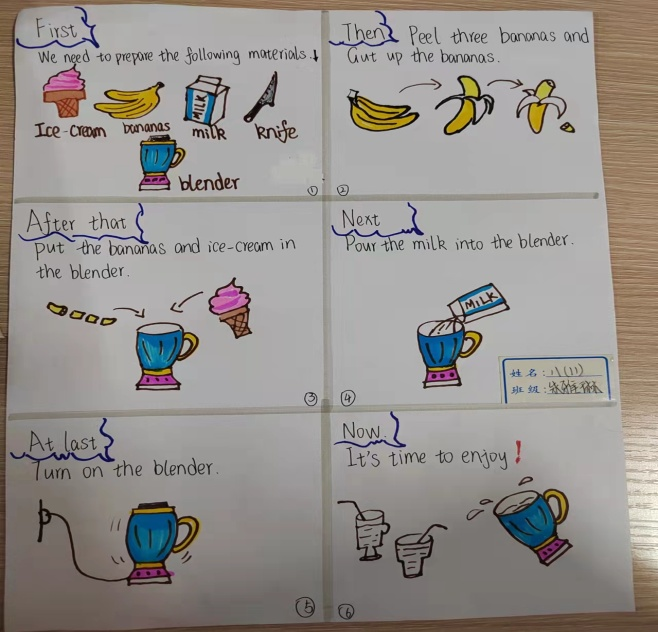 First
We need to prepare the following materials.
Ice-cream bananas milk knife
MILK
blender
①
Then Peel three bananas and
Cut up the bananas.
②
After that
put the bananas and ice-cream in
the blender.
③
Next
Pour the milk into the blender.
MILK
④
姓名: 八(11)
班级:
At last
Turn on the blender.
⑤
Now.
It's time to enjoy!
⑥